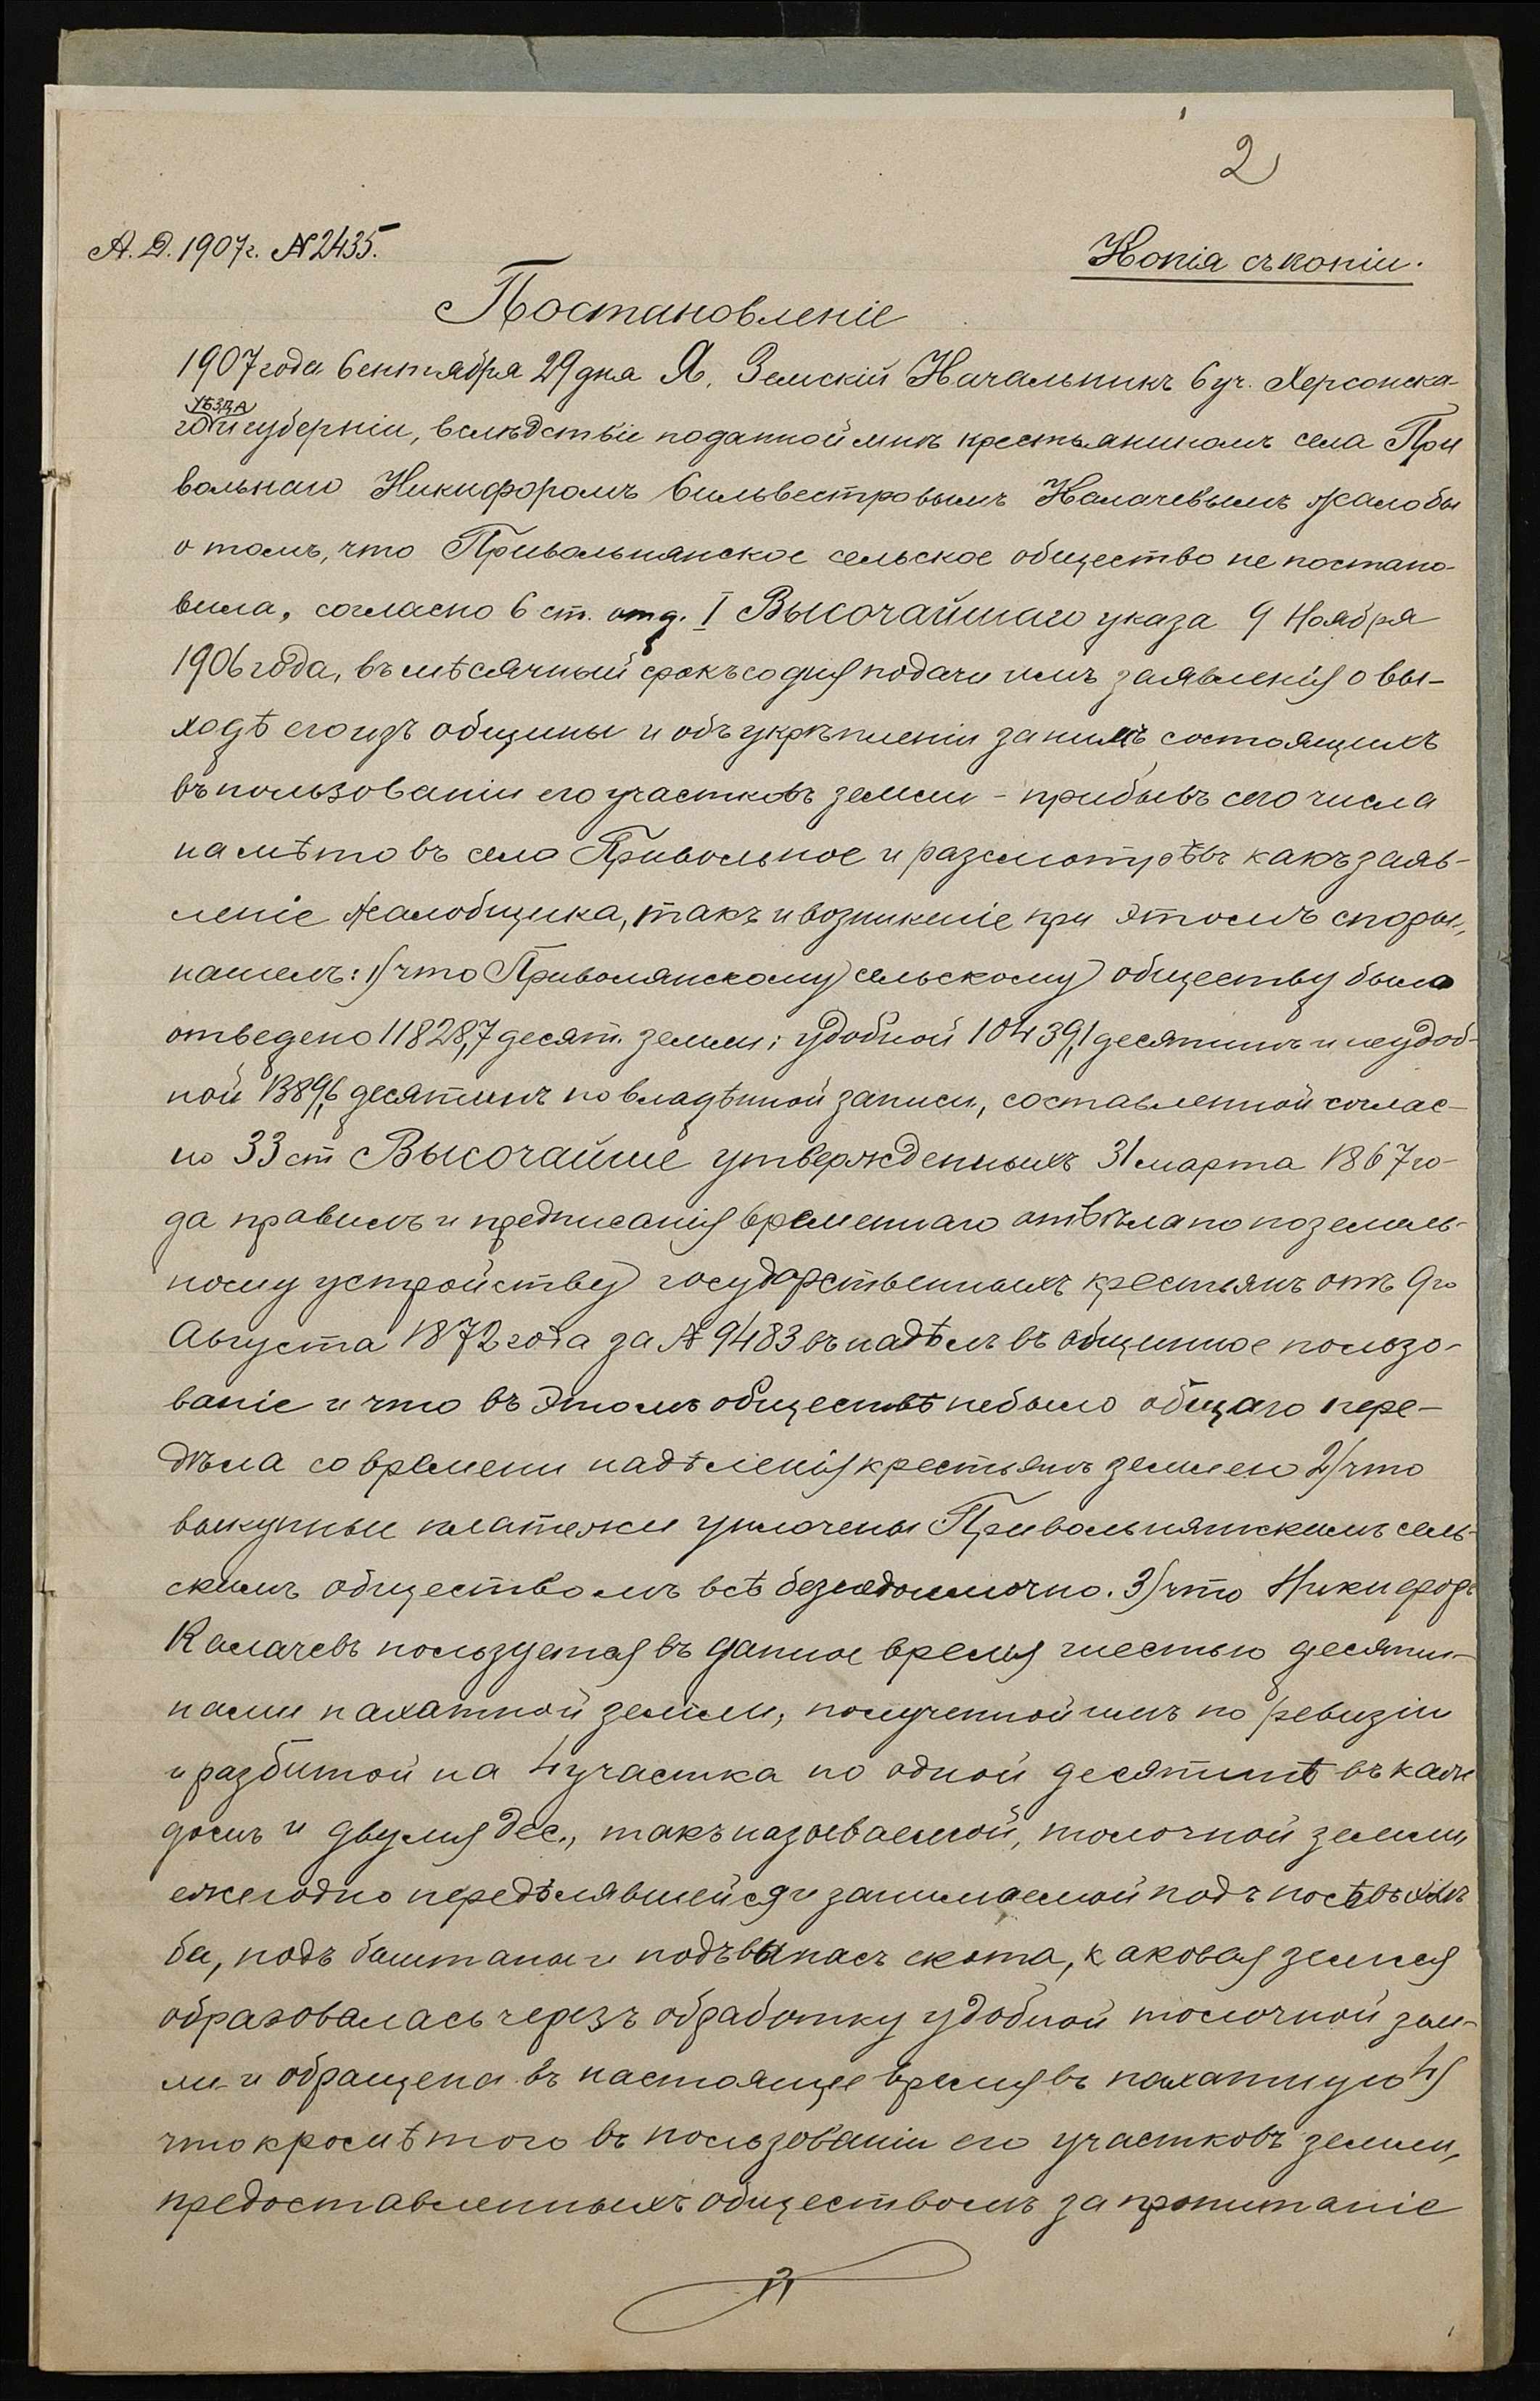 2
А. Д. 1907 г. № 2435.
Копія съ копіи.
Постановленіе
1907 года Сентября 29 дня Я, Земскій Начальникъ 6 уч. Херсонска-
уѣзда
го и губерніи, вслѣдствіе поданной мнѣ крестьяниномъ села При
вольнаго Никифоромъ Сильвестровымъ Калачевымъ жалобы
о томъ, что Привольнянское сельское общество не постано-
вила, согласно 6 ст. отд. I Высочайшаго указа 9 Ноября
1906 года, въ мѣсячный срокъ со дня подачи имъ заявленія о вы-
ходѣ его изъ общины и объ укрѣпленіи за нимъ состоящихъ
въ пользованіи его участковъ земли - прибывъ сего числа
на мѣто въ село Привольное и разсмотрѣвъ какъ заяв-
леніе жалобщика, такъ и возникшіе при этомъ споры,
нашелъ: 1) что Приволянскому сельскому обществу было
отведено 11828,7 десят. земли; удобной 10439,1 десятинъ и неудоб-
ной 1389,6 десятинъ по владѣнной записи, составленной соглас-
но 33 ст Высочайше утвержденныхъ 31 марта 1867 го-
да правилъ и предписанія временнаго отдѣла по поземель-
ному устройству государственныхъ крестьянъ отъ 9го
Августа 1872 года за № 9483 въ надѣлъ въ общинное пользо-
ваніе и что въ этомъ обществѣ небыло общаго пере-
дѣла со времени надѣленія крестьянъ землею 2) что
выкупные платежи уплочены Привольнянскимъ сель-
скимъ обществомъ всѣ безнедоимочно. 3) что Никифоръ
Калачевъ пользуется въ данное время шестью десяти-
нами пахатной земли, полученной имъ по ревизіи
и разбитой на 4 участка по одной десятинѣ въ каж
домъ и двумя дес., такъ называемой, толочной земли
ежегодно передѣлявшейся и занимаемой подъ посѣвъ хлѣ
ба, подъ баштаны и подъ выпасъ скота, каковая земля
образовалась черезъ обработку удобной толочной зем-
ли и обращена въ настоящее время въ пахатную 4)
что кромѣ того въ пользованіи его участковъ земли,
предоставленныхъ обществомъ за пропитаніе